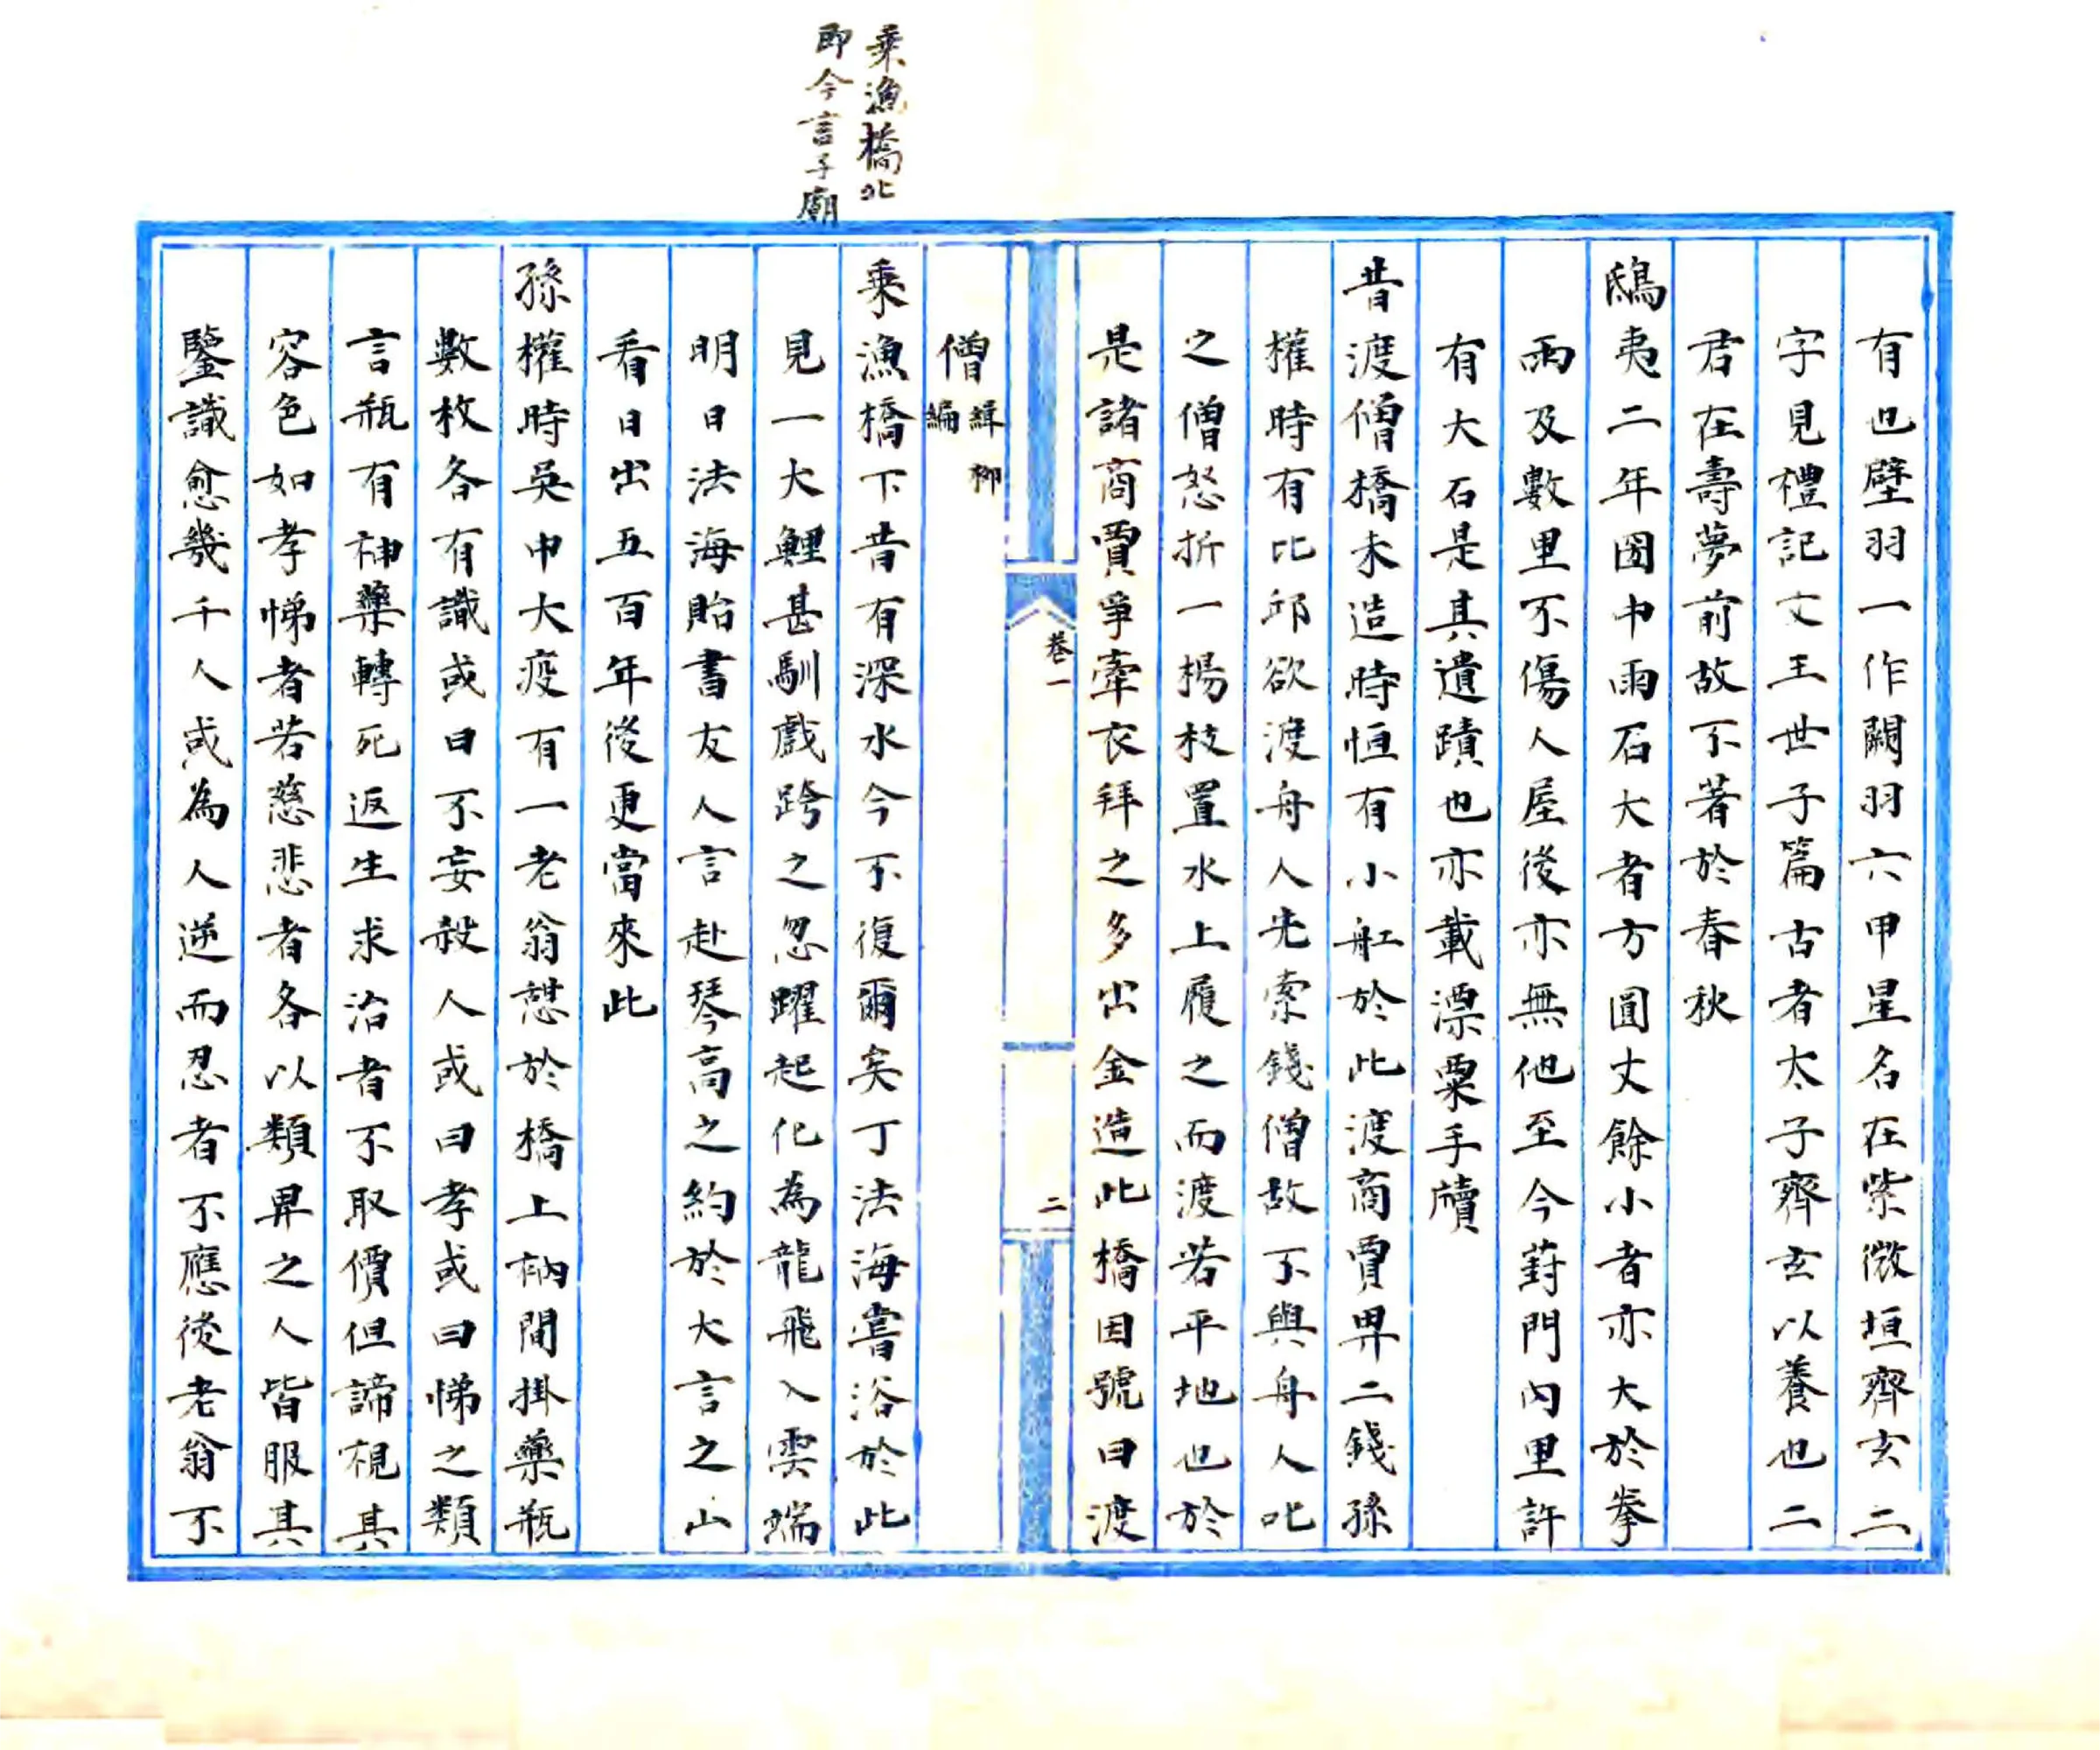 有也壁羽一作闕羽六甲星名在紫微垣齊玄二
字見禮記文王世子篇古者太子齊玄以養也二
君在壽夢前故不著於春秋
鴟夷二年圌中雨石大者方圓丈餘小者亦大於拳
雨及數里不傷人屋後亦無他至今葑門內里許
有大石是其遺蹟也亦載漂粟手牘
昔渡僧橋未造時恒有小舡於此渡商賈畀二錢孫
權時有比邱欲渡舟人先索錢僧故不與舟人叱
之僧怒折一楊枝置水上履之而渡若平地也於
是諸商賈爭牽衣拜之多出金造此橋因號曰渡
卷一
二
僧緝柳編
乘漁橋北
即今言子廟
乘漁橋下昔有深水今不復爾矣丁法海嘗浴於此
見一大鯉甚馴戲跨之忽躍起化為龍飛入雲端
明日法海貽書友人言赴琴高之約於大言之山
看日出五百年後更當來此
孫權時吳中大疫有一老翁憇於橋上衲間掛藥瓶
數枚各有識或曰不妄殺人或曰孝或曰悌之類
言瓶有神藥轉死返生求治者不取價但諦視其
容色如孝悌者若慈悲者各以類畀之人皆服其
鑒識愈幾千人或為人逆而忍者不應後老翁不